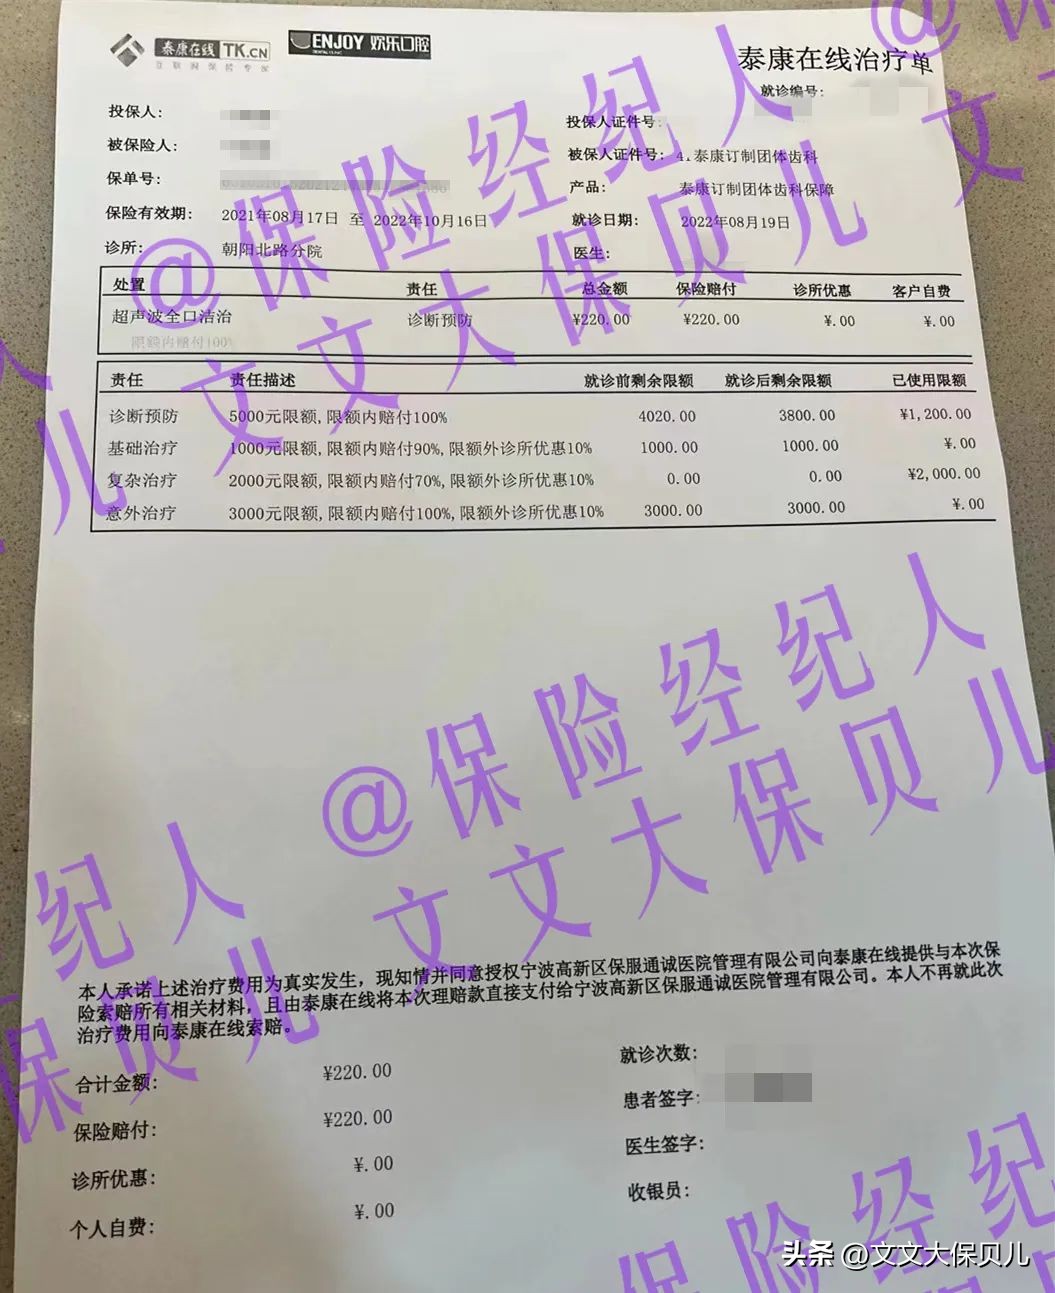 泰康在线 TK.CN
互联网保险专家
ENJOY 欢乐口腔
DENTAL CLINIC
泰康在线治疗单
就诊编号:
投保人:
投保人证件号:
被保险人:
被保人证件号: 4.泰康订制团体齿科
保单号:
产品: 泰康订制团体齿科保障
保险有效期: 2021年08月17日 至 2022年10月16日
就诊日期: 2022年08月19日
诊所: 朝阳北路分院
医生:
处置 责任 总金额 保险赔付 诊所优惠 客户自费
超声波全口洁治 诊断预防 ¥220.00 ¥220.00 ¥.00 ¥.00
限额内赔付100%
责任 责任描述 就诊前剩余限额 就诊后剩余限额 已使用限额
诊断预防 5000元限额,限额内赔付100% 4020.00 3800.00 ¥1,200.00
基础治疗 1000元限额,限额内赔付90%,限额外诊所优惠10% 1000.00 1000.00 ¥.00
复杂治疗 2000元限额,限额内赔付70%,限额外诊所优惠10% 0.00 0.00 ¥2,000.00
意外治疗 3000元限额,限额内赔付100%,限额外诊所优惠10% 3000.00 3000.00 ¥.00
本人承诺上述治疗费用为真实发生，现知情并同意授权宁波高新区保服通诚医院管理有限公司向泰康在线提供与本次保
险索赔所有相关材料，且由泰康在线将本次理赔款直接支付给宁波高新区保服通诚医院管理有限公司。本人不再就此次
治疗费用向泰康在线索赔。
合计金额: ¥220.00
就诊次数:
保险赔付: ¥220.00
患者签字:
诊所优惠: ¥.00
医生签字:
个人自费: ¥.00
收银员:
@保险经纪人
文文大保贝儿
@保险经纪人
文文大保贝儿
头条 @文文大保贝儿